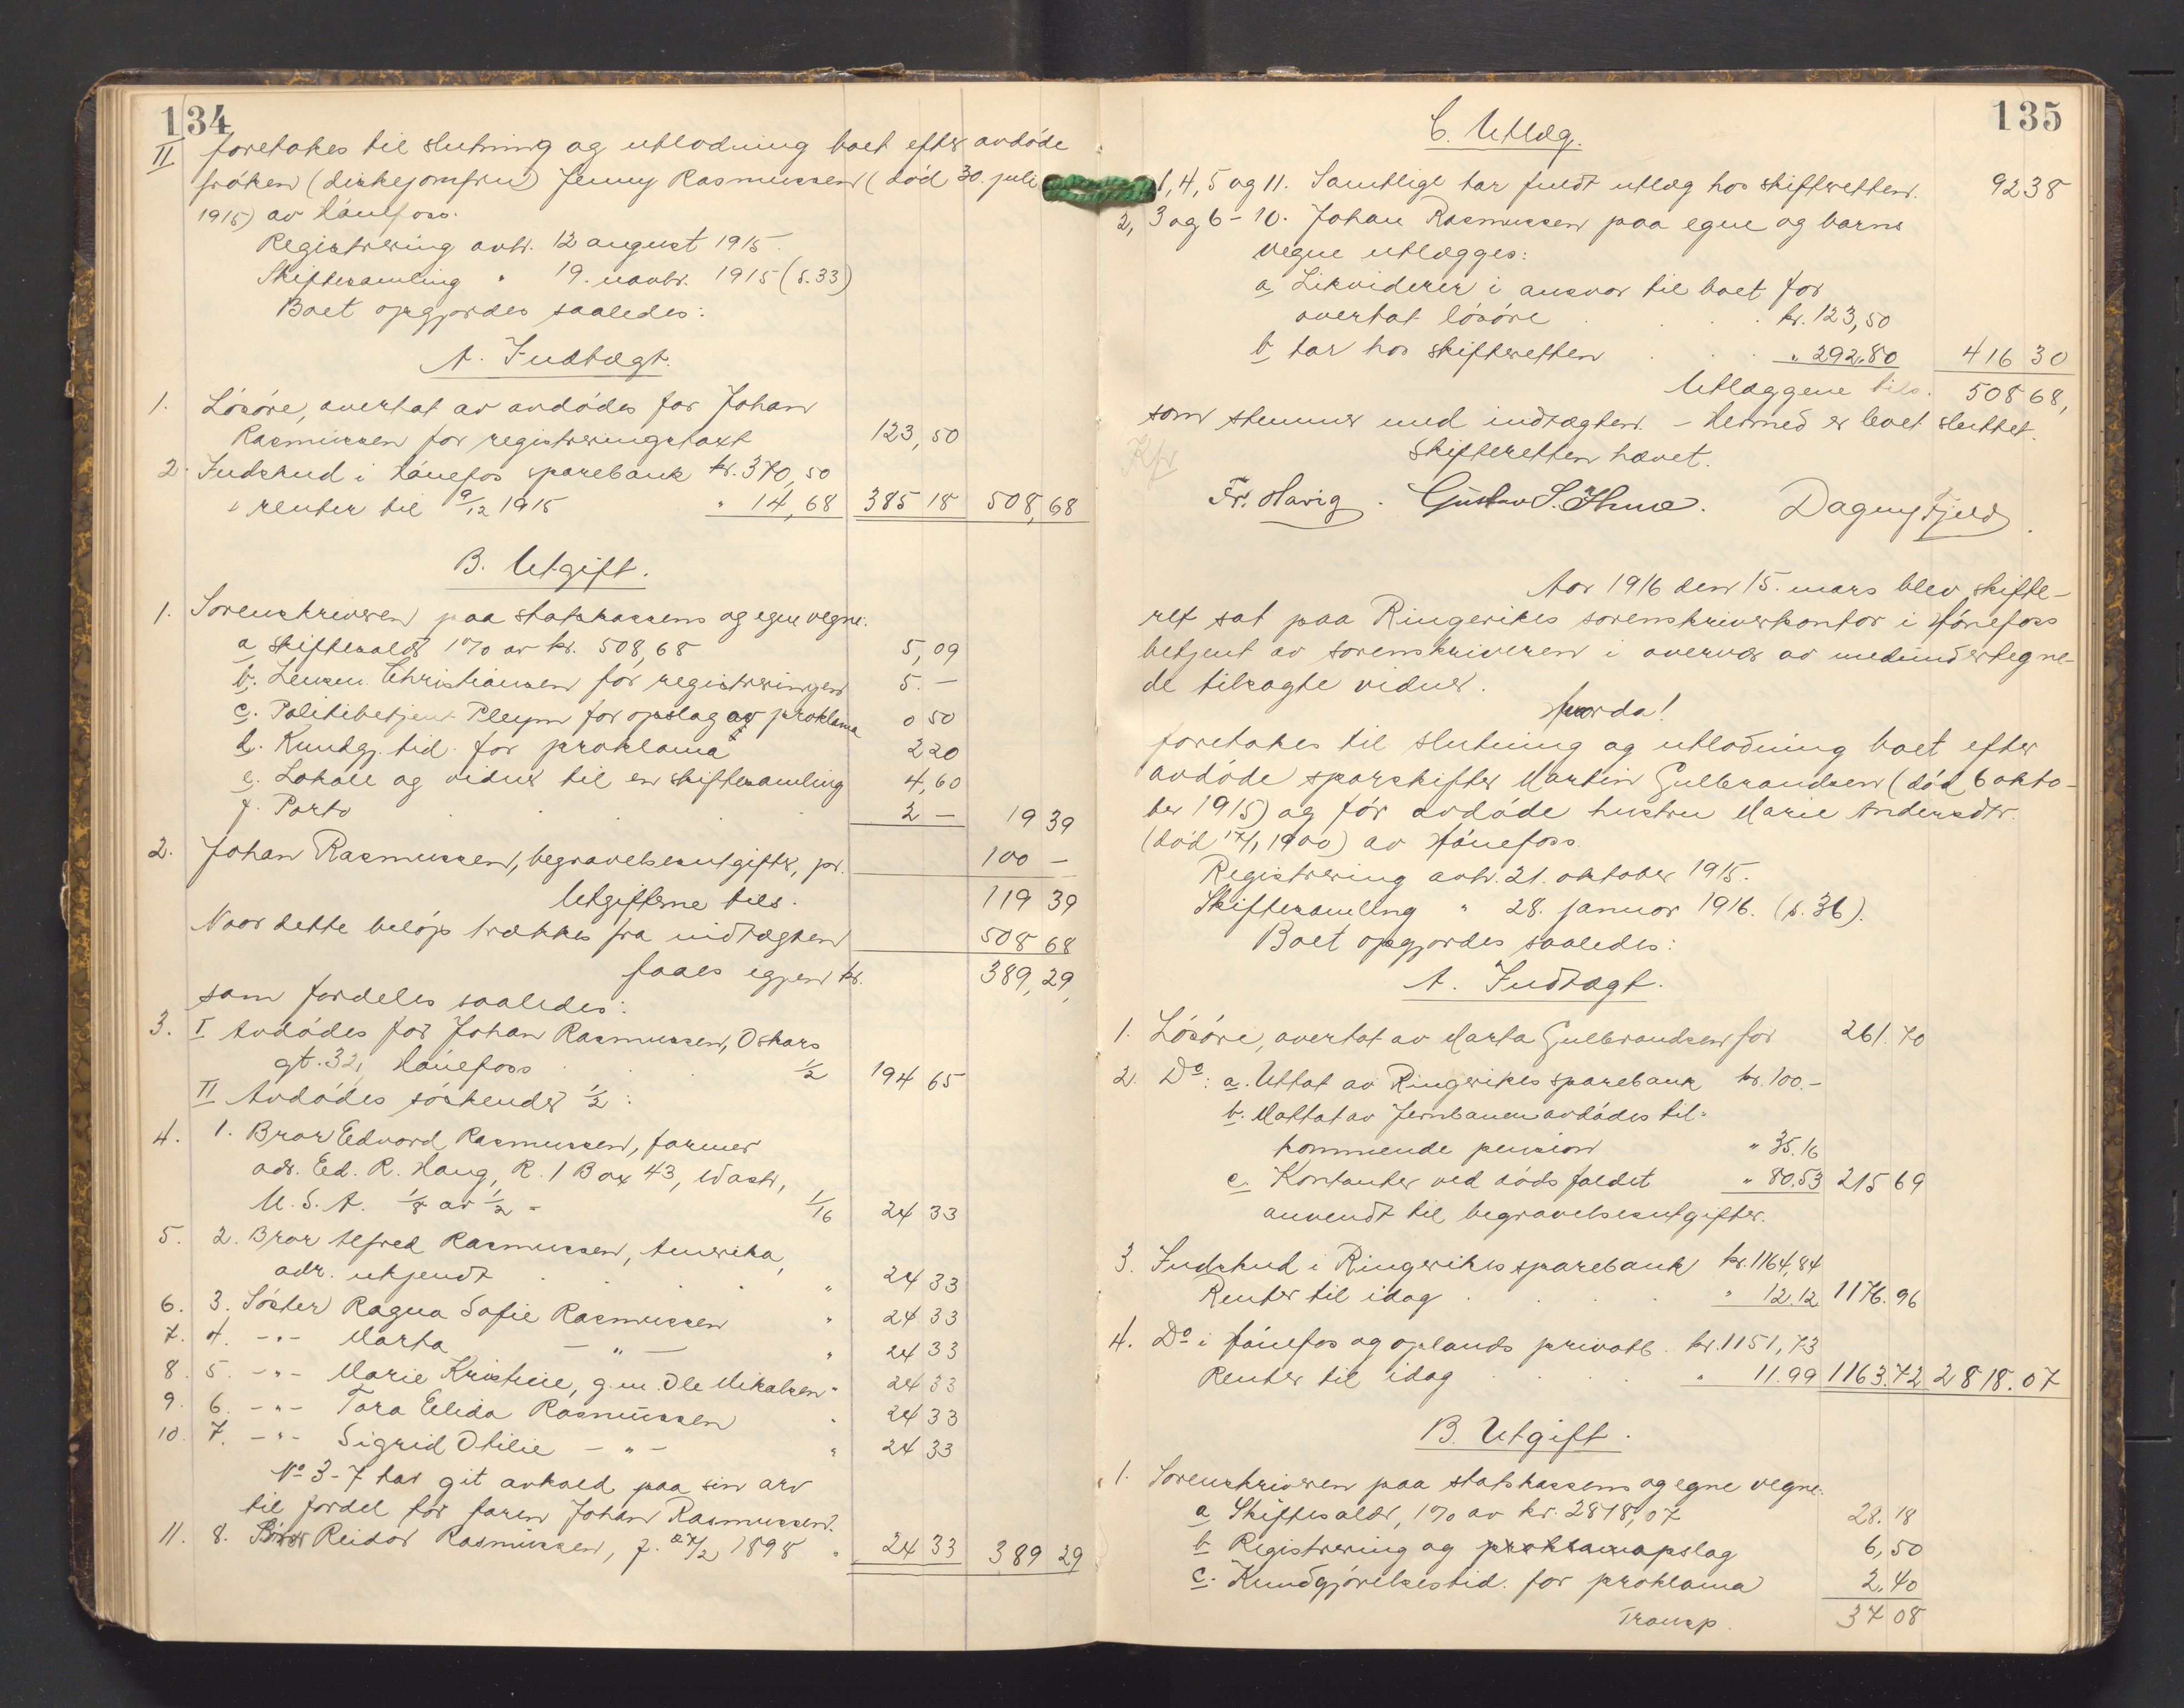 134
II foretakes til slutning og utlodning boet efter avdøde
frøken (diskejomfru) Jenny Rasmussen (død 30. juli
1915) av Hønefoss.
Registrering avh. 12 august 1915.
Skiftesamling " 19. novbr. 1915 (s. 33)
Boet opgjordes saaledes:
A. Indtægt.
1. Løsøre, overtat av avdødes far Johan
Rasmussen for registreringstaxt 123,50
2. Indskud i Hønefos sparebank kr. 370,50
+ renter til 9/12 1915 " 14,68 385 18 508,68
B. Utgift.
1. Sorenskriveren paa statskassens og egne vegne:
a skifteavgift 1% av kr. 508,68 5,09
b. Lensm. Christiansen for registreringen 5.-
c. Politibetjent Pleym for opslag av proklama 0 50
d. Kundgj. tid. for proklama 2 20
e. Lokale og vidner til en skiftesamling 4,60
f. Porto 2 - 19 39
2. Johan Rasmussen, begravelsesutgifter, pr. 100 -
Utgifterne tils. 119 39
Naar dette beløp trækkes fra indtægten 508 68
faaes igjen kr. 389,29,
som fordeles saaledes:
3. I Avdødes far Johan Rasmussen, Oskars
gt. 32, Hønefoss 1/2 194 65
II Avdødes søskender 1/2:
4. 1. Bror Edvard Rasmussen, farmer
adr. Ed. R. Haug, R. 1 Box 43, Wash,
U.S.A. 1/8 av 1/2 = 1/16 24 33
5. 2. Bror Alfred Rasmussen, Amerika,
adr. ukjendt " 24 33
6. 3. Søster Ragna Sofie Rasmussen " 24 33
7. 4. -"- Marta -"- " 24 33
8. 5. -"- Marie Kristine, g.m. Ole Mikalsen " 24 33
9. 6. -"- Tora Elida Rasmussen " 24 33
10. 7. -"- Sigrid Otilie -"- " 24 33
No 3-7 har git avkald paa sin arv
til fordel for faren Johan Rasmussen.
11. 8. Bror Reidar Rasmussen, f. 27/2 1898 " 24 33 389 29
135
C. Utlæg.
1, 4, 5 og 11. Samtlige har fuldt utlæg hos skifteretten. 92 38
2, 3 og 6-10. Johan Rasmussen paa egne og barns
vegne utlægges:
a Likviderer i ansvar til boet for
overtat løsøre kr. 123,50
b har hos skifteretten " 292.80 416 30
Utlæggene tils. 508 68,
som stemmer med indtægten. - Hermed er boet sluttet.
Skifteretten hævet.
Fr. Mavig. Gustav S. Dagny Fjeld.
Aar 1916 den 15. mars blev skifte-
ret sat paa Ringerikes sorenskriverkontor i Hønefoss
betjent av sorenskriveren i overvær av medundertegne-
de tilsagte vidner.
Hvorda!
foretakes til slutning og utlodning boet efter
avdøde sporskifter Martin Gulbrandsen (død 6 okto-
ber 1915) og før avdøde hustru Marie Andersdtr.
(død 17/1 1900) av Hønefoss.
Registrering avh. 21. oktober 1915.
Skiftesamling " 28. januar 1916. (s. 36).
Boet opgjordes saaledes:
A. Indtægt.
1. Løsøre, overtat av Marta Gulbrandsen for 261. 70
2. Do: a. Uttat av Ringerikes sparebank kr. 100.-
b. Mottat av Jernbanen avdødes til-
kommende pension " 35.16
c. Kontanter ved dødsfaldet " 80.53 215 69
anvendt til begravelsesutgifter.
3. Indskud i Ringerikes sparebank kr. 1164,84
Renter til idag " 12.12 1176. 96
4. Do i Hønefos og oplands privatb. kr. 1151,73
Renter til idag " 11.99 1163.72 2818.07
B. Utgift.
1. Sorenskriveren paa statskassens og egne vegne.
a Skifteavgift, 1% av kr. 2818,07 28. 18
b Registrering og proklamaopslag 6,50
c. Kundgjørelsestid. for proklama 2,40
Transp. 37 08